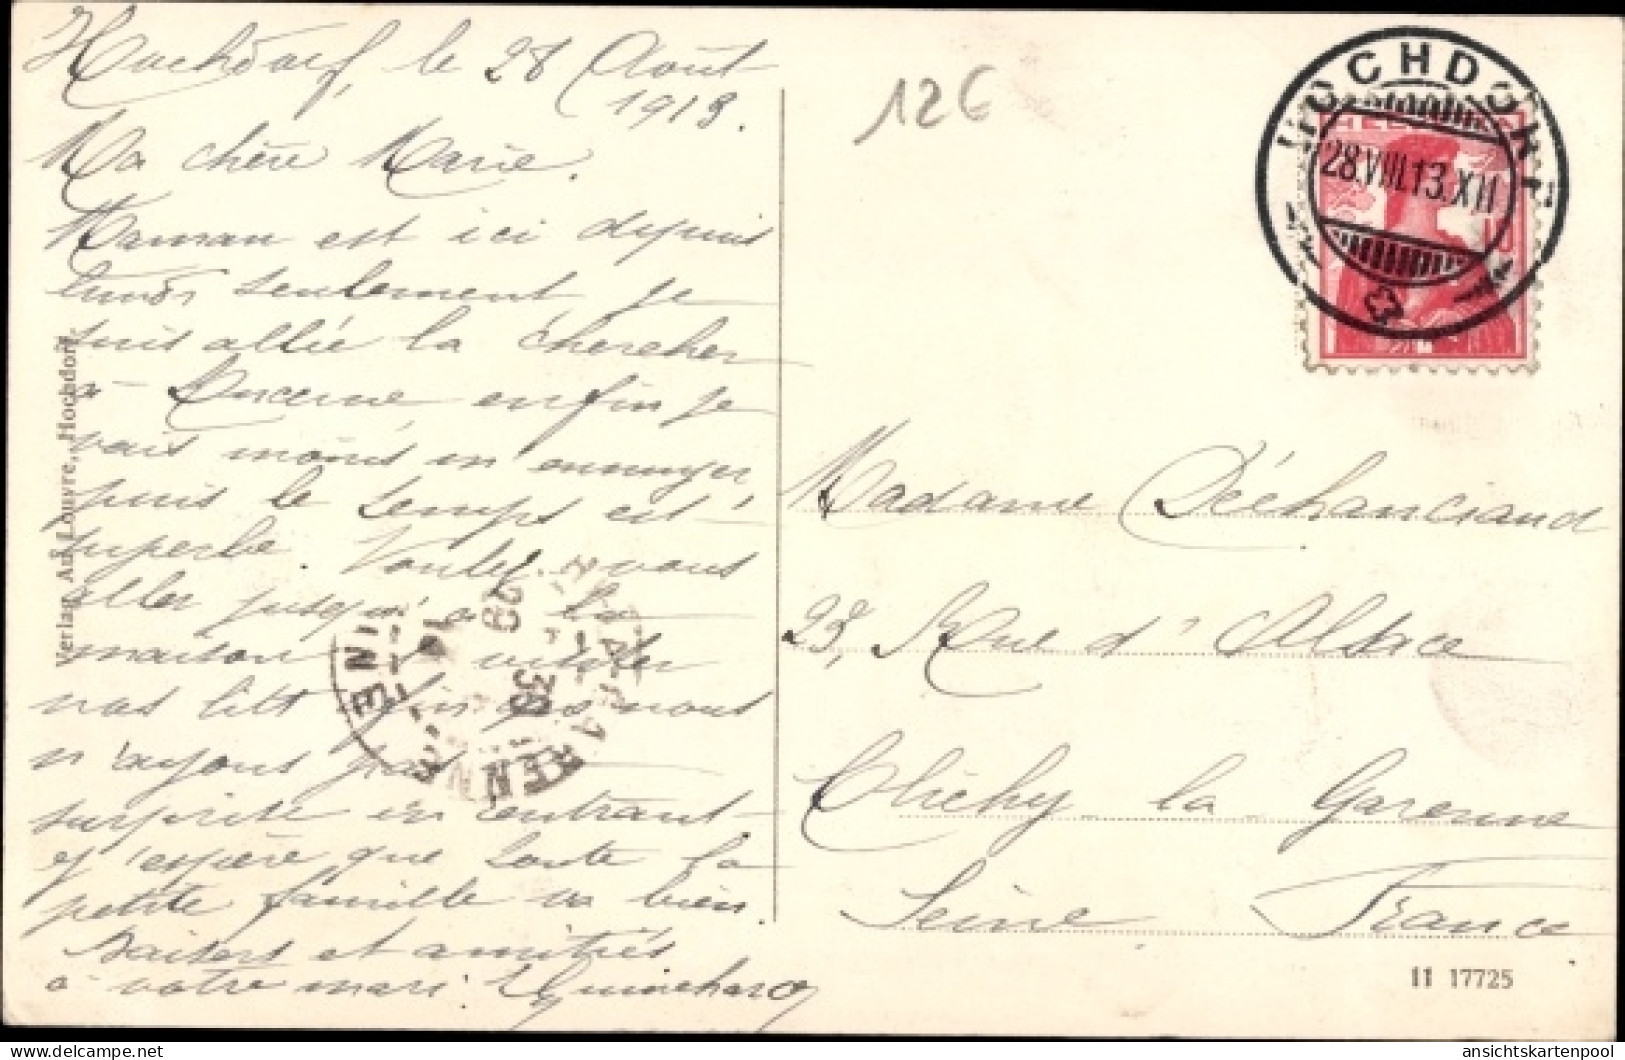 Hochdorf, le 28 Août
1913.
Ma chère Marie.
Maman est ici depuis
lundi seulement je
suis allée la chercher
à Lucerne enfin je
vais moins m'ennuyer
puis le temps est
superbe. Voulez-vous
aller jusqu'à la
maison et visiter
nos lits afin que nous
n'ayons pas
surprise en entrant
j'espère que toute la
petite famille va bien.
Baisers et amitiés
à votre mari
Verlag Ad. Louvre, Hochdorf.
12€
HOCHDORF
28.VIII.13.XII
HELVETIA
10
GARENNE
SEINE
Madame Déchanciaud
23, Rue d'Alsace
Clichy la Garenne
Seine France
11 17725
delcampe.net
ansichtskartenpool